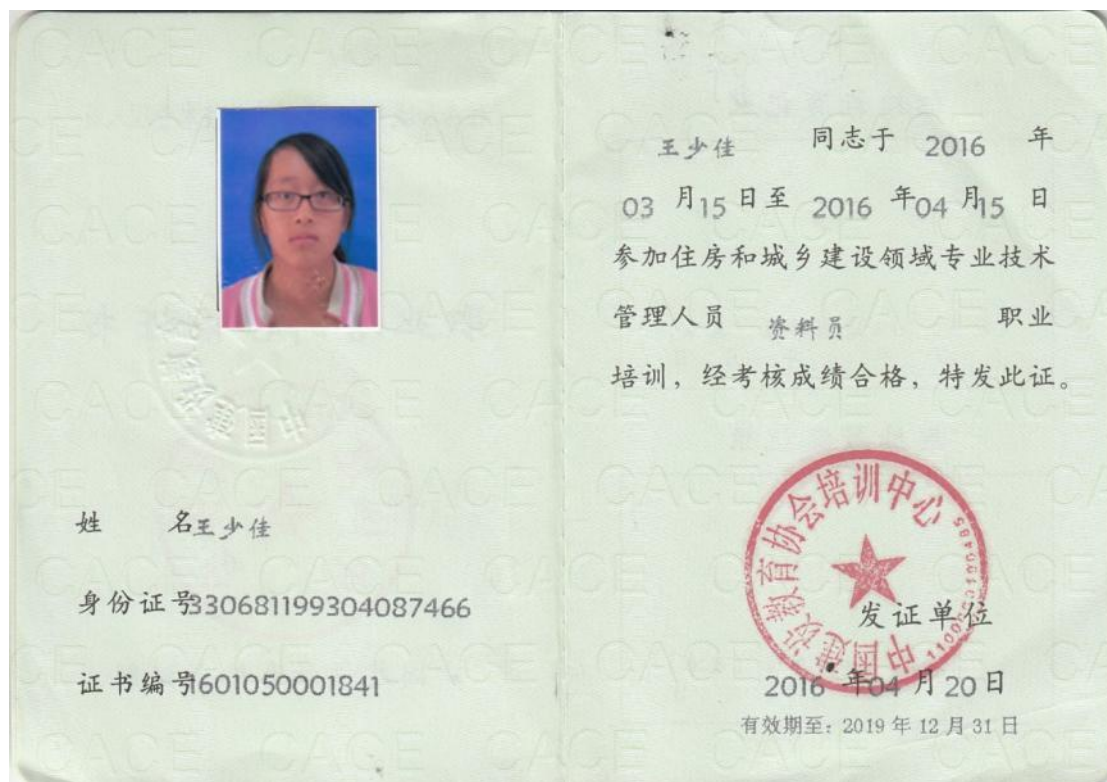 姓 名 王少佳
身份证号 330681199304087466
证书编号 1601050001841
王少佳 同志于 2016 年
03 月 15 日至 2016 年 04 月 15 日
参加住房和城乡建设领域专业技术
管理人员 资料员 职业
培训，经考核成绩合格，特发此证。
中国建设教育协会培训中心
发证单位
2016 年 04 月 20 日
有效期至：2019 年 12 月 31 日
CACE